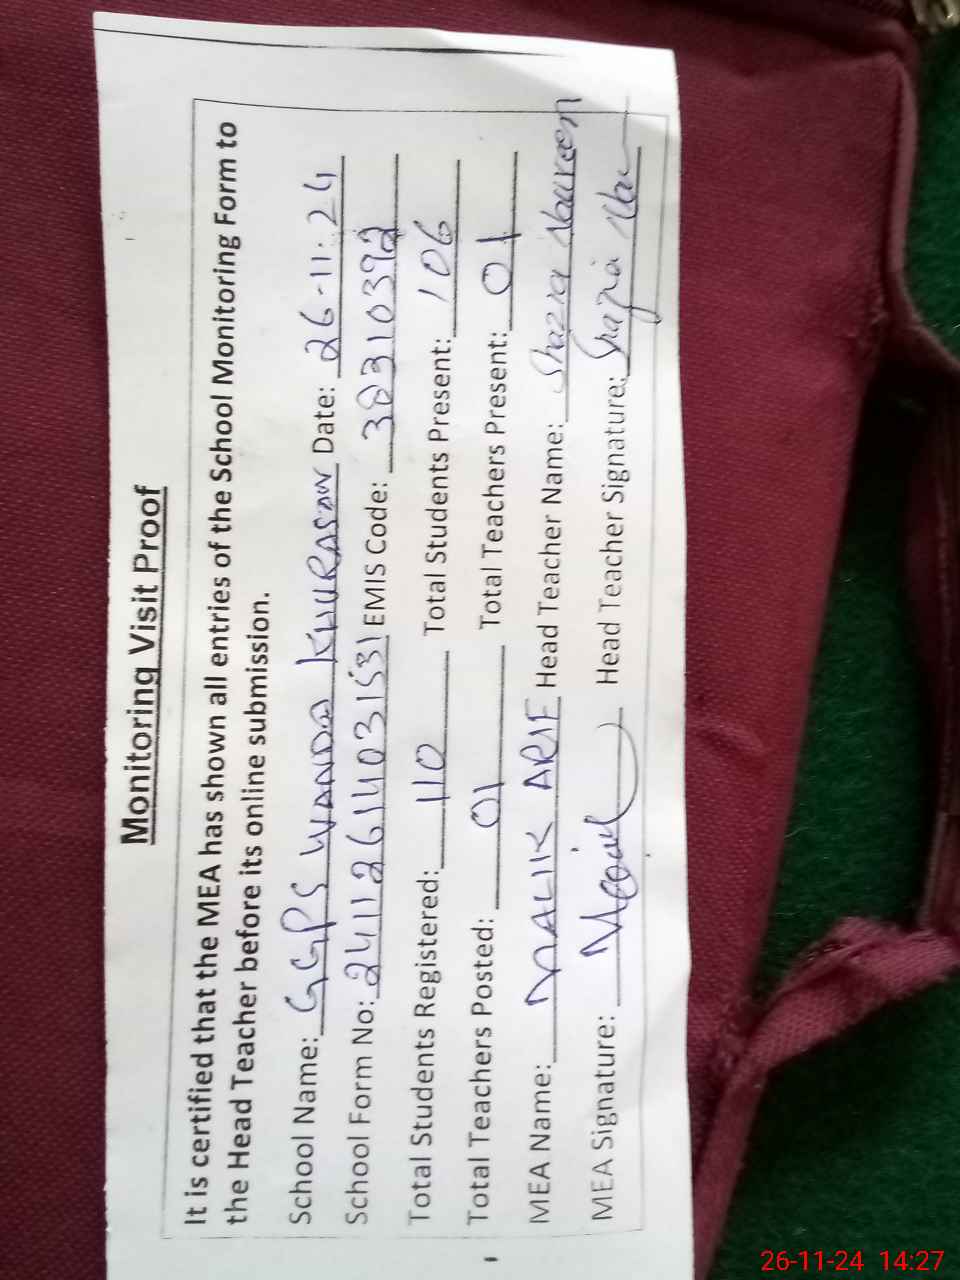 Monitoring Visit Proof
It is certified that the MEA has shown all entries of the School Monitoring Form to
the Head Teacher before its online submission.
School Name: GGPS WANDA KHURASAN Date: 26-11-24
School Form No: 24112614031531 EMIS Code: 38310392
Total Students Registered: 110 Total Students Present: 106
Total Teachers Posted: 01 Total Teachers Present: 01
MEA Name: MALIK ARIF Head Teacher Name: Shazia Naureen
MEA Signature: Head Teacher Signature: Shazia
26-11-24 14:27